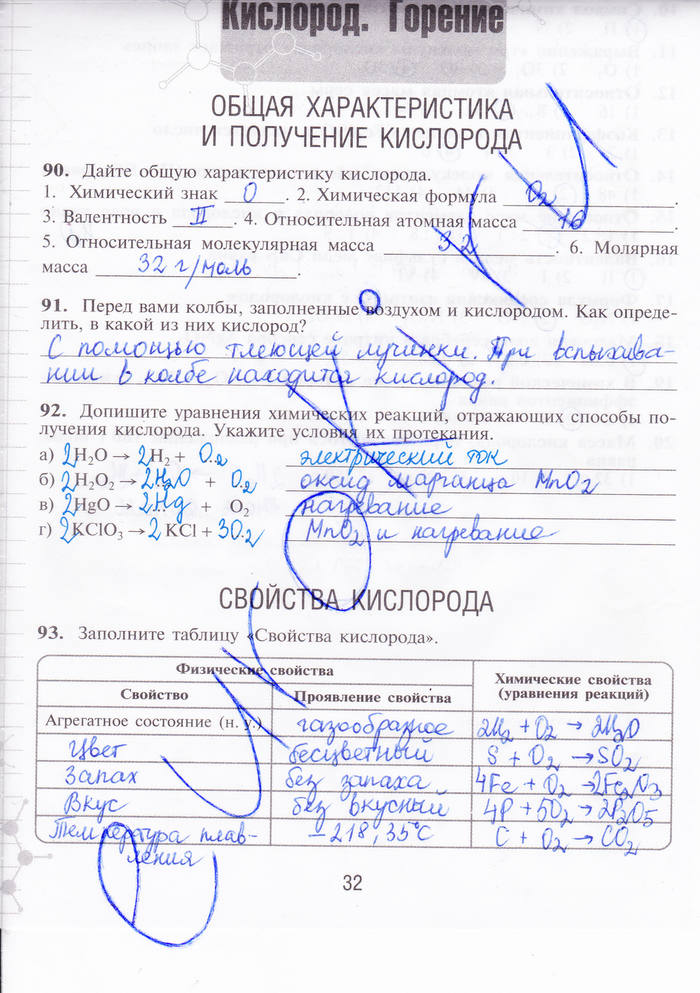 Кислород. Горение
ОБЩАЯ ХАРАКТЕРИСТИКА
И ПОЛУЧЕНИЕ КИСЛОРОДА
90. Дайте общую характеристику кислорода.
1. Химический знак O. 2. Химическая формула O₂.
3. Валентность II. 4. Относительная атомная масса 16.
5. Относительная молекулярная масса 32. 6. Молярная
масса 32 г/моль.
91. Перед вами колбы, заполненные воздухом и кислородом. Как опреде-
лить, в какой из них кислород?
С помощью тлеющей лучинки. При вспыхива-
нии в колбе находится кислород.
92. Допишите уравнения химических реакций, отражающих способы по-
лучения кислорода. Укажите условия их протекания.
а) 2H₂O → 2H₂ + O₂ электрический ток
б) 2H₂O₂ → 2H₂O + O₂ оксид марганца MnO₂
в) 2HgO → 2Hg + O₂ нагревание
г) 2KClO₃ → 2KCl + 3O₂ MnO₂ и нагревание
СВОЙСТВА КИСЛОРОДА
93. Заполните таблицу «Свойства кислорода».
Физические свойства Химические свойства
(уравнения реакций)
Свойство Проявление свойства
Агрегатное состояние (н. у.) газообразное 2H₂ + O₂ → 2H₂O
Цвет бесцветный S + O₂ → SO₂
Запах без запаха 4Fe + O₂ → 2Fe₂O₃
Вкус без вкусный 4P + 5O₂ → 2P₂O₅
Температура плав- −218,35°C C + O₂ → CO₂
ления
32